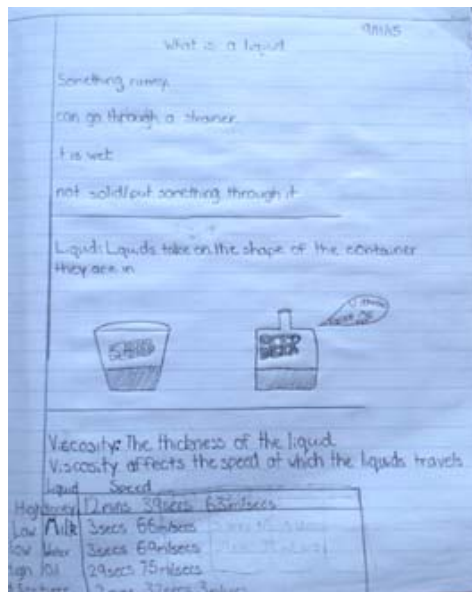 9/11/15
What is a liquid
Something runny
can go through a strainer
t is wet
not solid/put something through it
Liquid: Liquids take on the shape of the container
they are in
BEER
Viscosity: The thickness of the liquid
Viscosity affects the speed at which the liquids travels
Liquid Speed
High Honey 12mins 39secs 63m/secs
Low Milk 3secs 66m/secs
low Water 3secs 69m/secs
Oil 29secs 75m/secs